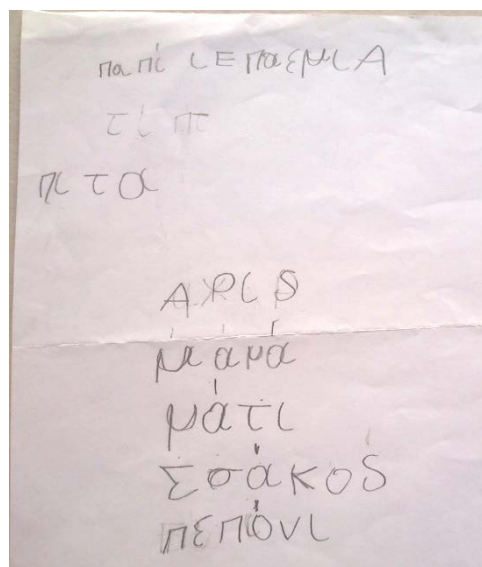 παπί ιΕπαεμιΑ
τί π
πι τα
ΑΡΙS
μάμά
μάτι
Σσάκος
πεπόνι